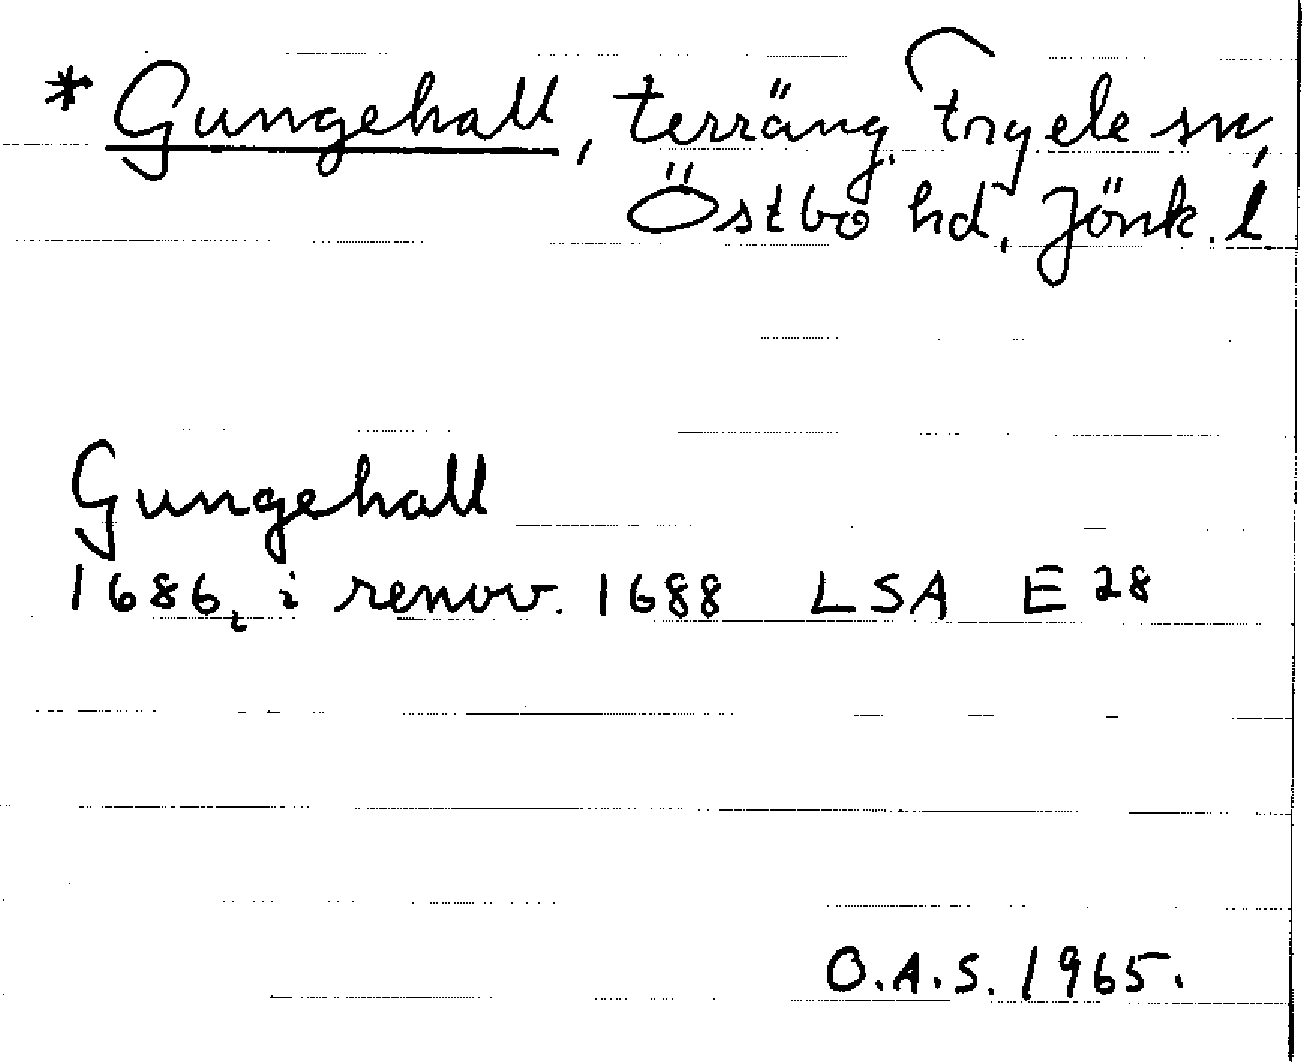 * Gungehall, terräng. Tryele sn,
Östbo hd, Jönk. l
Gungehall
1686, i renov. 1688 LSA E 28
O.A.S. 1965.